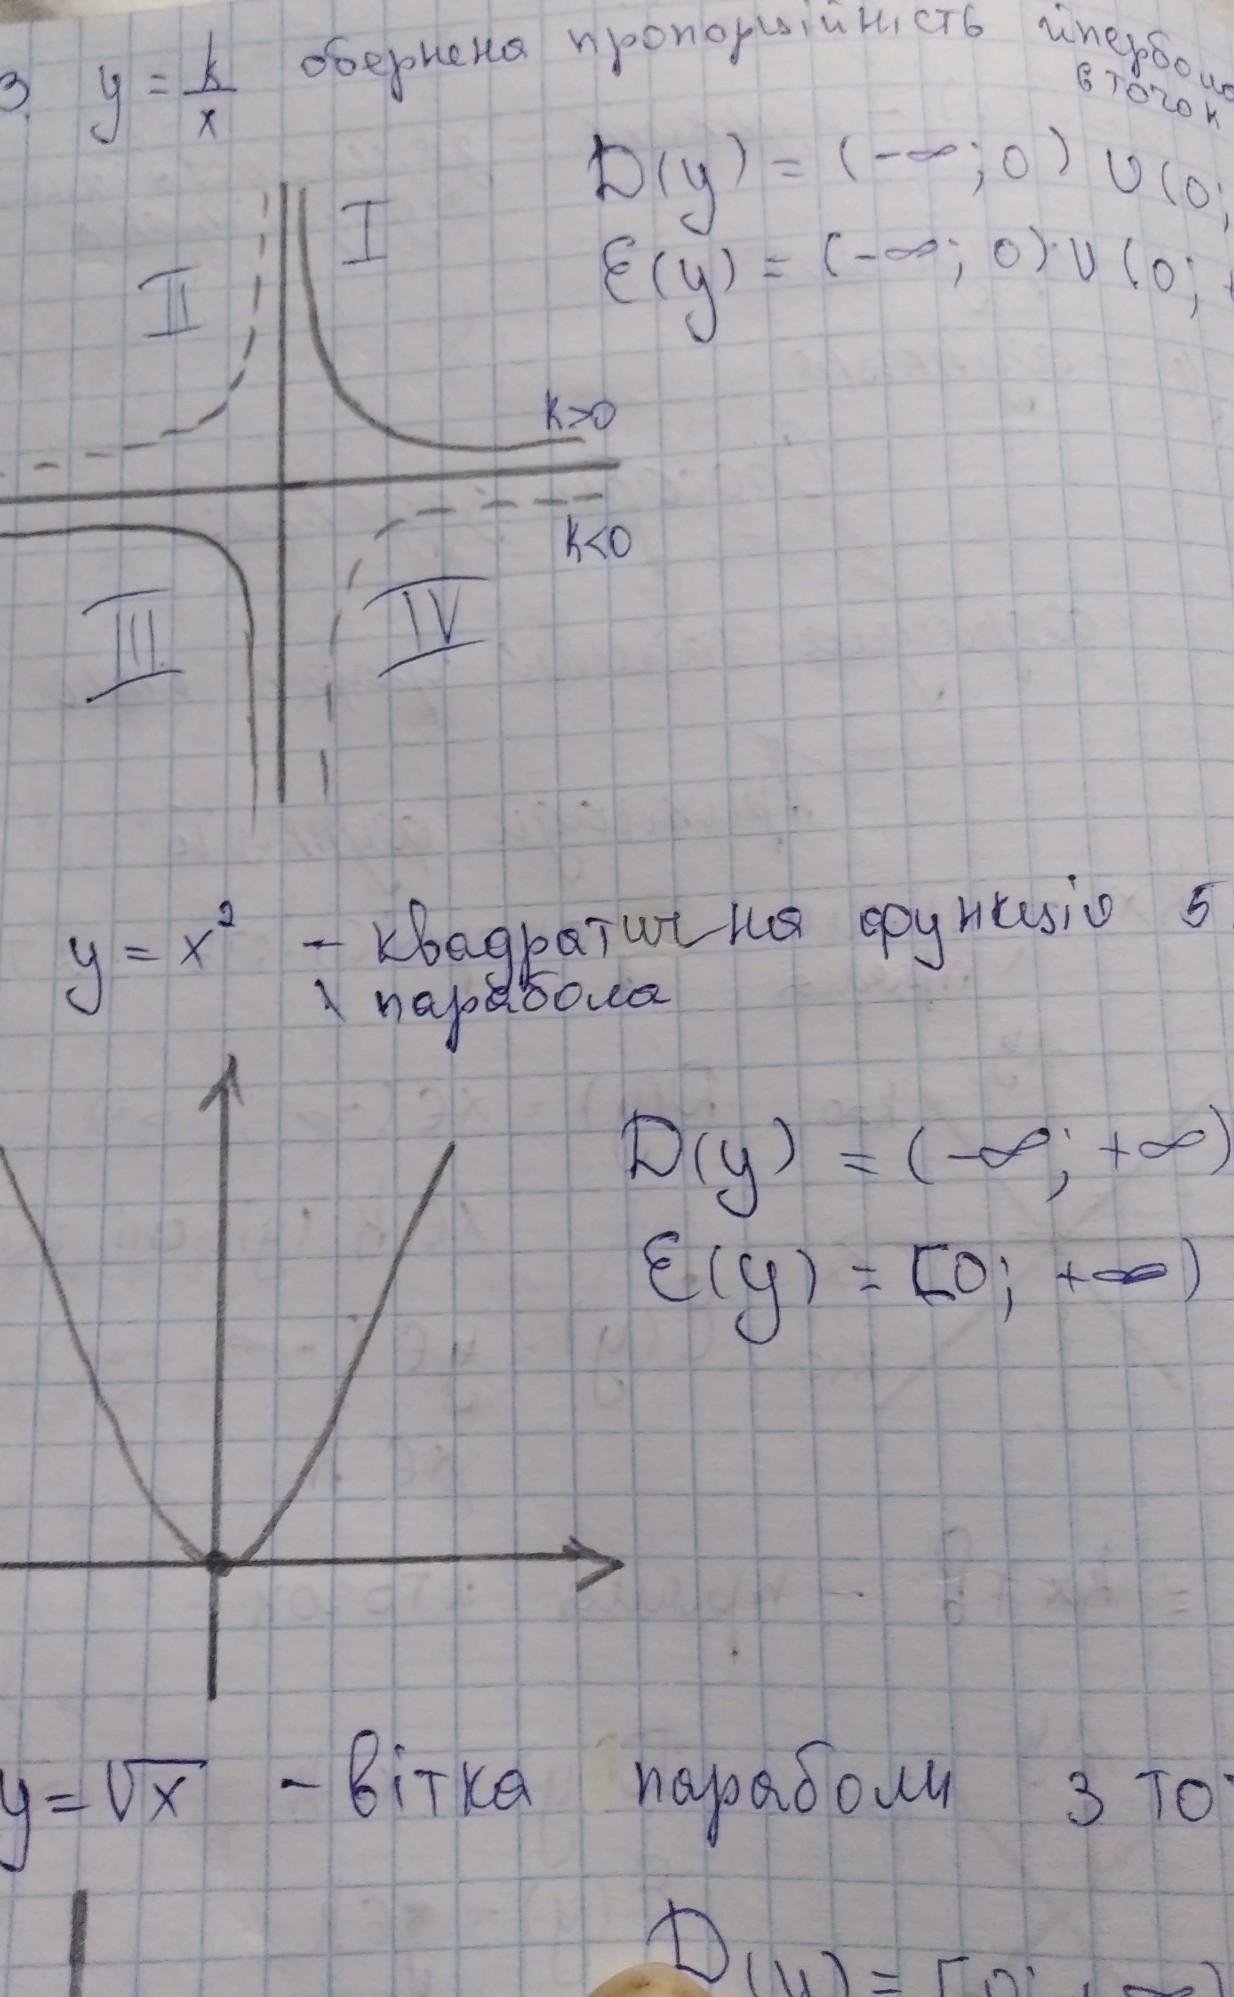 3. y = k/x обернена пропорційність гіпербола
6 точок
D(y) = (-∞; 0) ∪ (0;
E(y) = (-∞; 0) ∪ (0; +
I
II
k>0
k<0
III
IV
y = x² - квадратична функція 5
парабола
D(y) = (-∞; +∞)
E(y) = [0; +∞)
y = √x - вітка параболи 3 то
D(y) = [0; +∞)